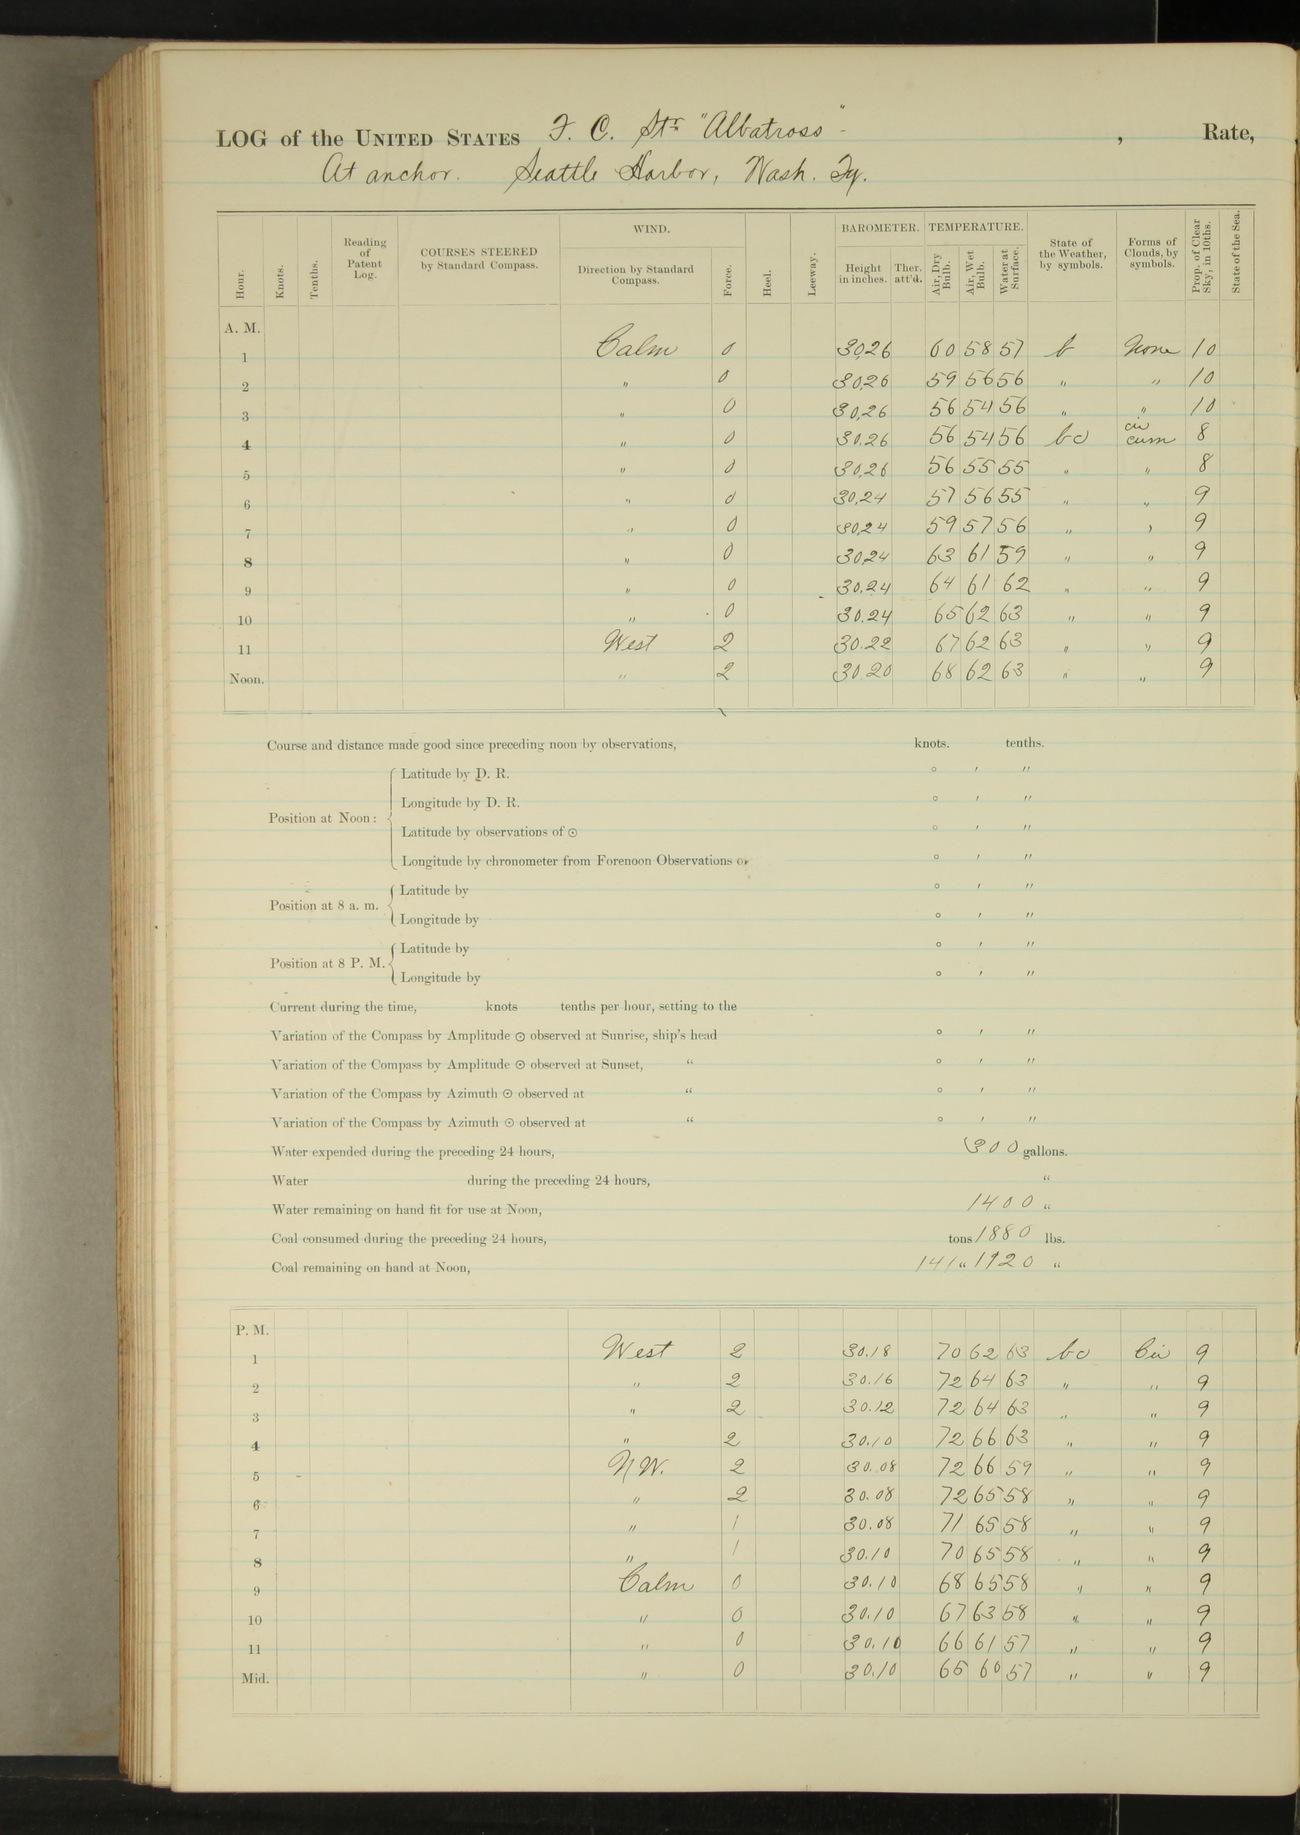 LOG of the UNITED STATES F. C. Str "Albatross" , Rate,
At anchor. Seattle Harbor, Wash. Ty.
Hour. Knots. Tenths. Reading of Patent Log. COURSES STEERED by Standard Compass. WIND. Direction by Standard Compass. Force. Heel. Leeway. BAROMETER. Height in inches. Ther. att'd. TEMPERATURE. Air, Dry Bulb. Air, Wet Bulb. Water at Surface. State of the Weather, by symbols. Forms of Clouds, by symbols. Prop. of Clear Sky, in 10ths. State of the Sea.
A. M.
1 Calm 0 30.26 60 58 57 b None 10
2 " 0 30.26 59 56 56 " " 10
3 " 0 30.26 56 54 56 " " 10
4 " 0 30.26 56 54 56 bc cir cum 8
5 " 0 30.26 56 55 55 " " 8
6 " 0 30.24 57 56 55 " " 9
7 " 0 30.24 59 57 56 " " 9
8 " 0 30.24 63 61 59 " " 9
9 " 0 30.24 64 61 62 " " 9
10 " 0 30.24 65 62 63 " " 9
11 West 2 30.22 67 62 63 " " 9
Noon. " 2 30.20 68 62 63 " " 9
Course and distance made good since preceding noon by observations, knots. tenths.
Position at Noon:
Latitude by D. R. ° ' "
Longitude by D. R. ° ' "
Latitude by observations of ⊙ ° ' "
Longitude by chronometer from Forenoon Observations or ° ' "
Position at 8 a. m.
Latitude by ° ' "
Longitude by ° ' "
Position at 8 P. M.
Latitude by ° ' "
Longitude by ° ' "
Current during the time, knots tenths per hour, setting to the
Variation of the Compass by Amplitude ⊙ observed at Sunrise, ship's head ° ' "
Variation of the Compass by Amplitude ⊙ observed at Sunset, " ° ' "
Variation of the Compass by Azimuth ⊙ observed at " ° ' "
Variation of the Compass by Azimuth ⊙ observed at " ° ' "
Water expended during the preceding 24 hours, 300 gallons.
Water during the preceding 24 hours, "
Water remaining on hand fit for use at Noon, 1400 "
Coal consumed during the preceding 24 hours, tons 1880 lbs.
Coal remaining on hand at Noon, 141 " 1120 "
P. M.
1 West 2 30.18 70 62 63 bc Cir 9
2 " 2 30.16 72 64 63 " " 9
3 " 2 30.12 72 64 63 " " 9
4 " 2 30.10 72 66 63 " " 9
5 NW. 2 30.08 72 66 59 " " 9
6 " 2 30.08 72 65 58 " " 9
7 " 1 30.08 71 65 58 " " 9
8 " 1 30.10 70 65 58 " " 9
9 Calm 0 30.10 68 65 58 " " 9
10 " 0 30.10 67 63 58 " " 9
11 " 0 30.10 66 61 57 " " 9
Mid. " 0 30.10 65 60 57 " " 9